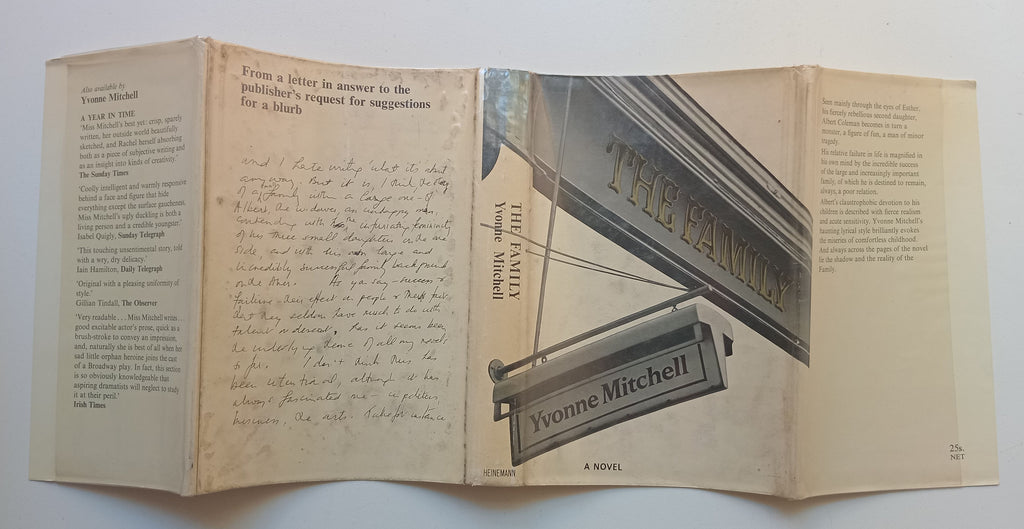 Also available by
Yvonne Mitchell
A YEAR IN TIME
'Miss Mitchell's best yet: crisp, sparely
written, her outside world beautifully
sketched, and Rachel herself absorbing
both as a piece of subjective writing and
as an insight into kinds of creativity.'
The Sunday Times
'Coolly intelligent and warmly responsive
behind a face and figure that hide
everything except the surface gaucheness,
Miss Mitchell's ugly duckling is both a
living person and a credible youngster.'
Isabel Quigly, Sunday Telegraph
'This touching unsentimental story, told
with a wry, dry delicacy.'
Iain Hamilton, Daily Telegraph
'Original with a pleasing uniformity of
style.'
Gillian Tindall, The Observer
'Very readable . . . Miss Mitchell writes . .
good excitable actor's prose, quick as a
brush-stroke to convey an impression,
and, naturally she is best of all when her
sad little orphan heroine joins the cast
of a Broadway play. In fact, this section
is so obviously knowledgeable that
aspiring dramatists will neglect to study
it at their peril.'
Irish Times
From a letter in answer to the
publisher's request for suggestions
for a blurb
and I hate writing 'what it's about'
anyway. But it is, I think, the story
of a family within a large one - of
Albert the widower, an unhappy man,
contending with the infuriating femininity
of his three small daughters on the one
side, and with his own large and
incredibly successful family background
on the other. As you say - success &
failure - their effect on people & the fact
that they seldom have much to do with
talent or desert, has it seems been
the underlying theme of all my novels
so far. I don't think this has
been intentional, although it has
always fascinated me - in politics,
business, the arts. Take for instance
THE FAMILY
Yvonne Mitchell
HEINEMANN
THE FAMILY
Yvonne Mitchell
A NOVEL
Seen mainly through the eyes of Esther,
his fiercely rebellious second daughter,
Albert Coleman becomes in turn a
monster, a figure of fun, a man of minor
tragedy.
His relative failure in life is magnified in
his own mind by the incredible success
of the large and increasingly important
family, of which he is destined to remain,
always, a poor relation.
Albert's claustrophobic devotion to his
children is described with fierce realism
and acute sensitivity. Yvonne Mitchell's
haunting lyrical style brilliantly evokes
the miseries of comfortless childhood.
And always across the pages of the novel
lie the shadow and the reality of the
Family.
25s.
NET